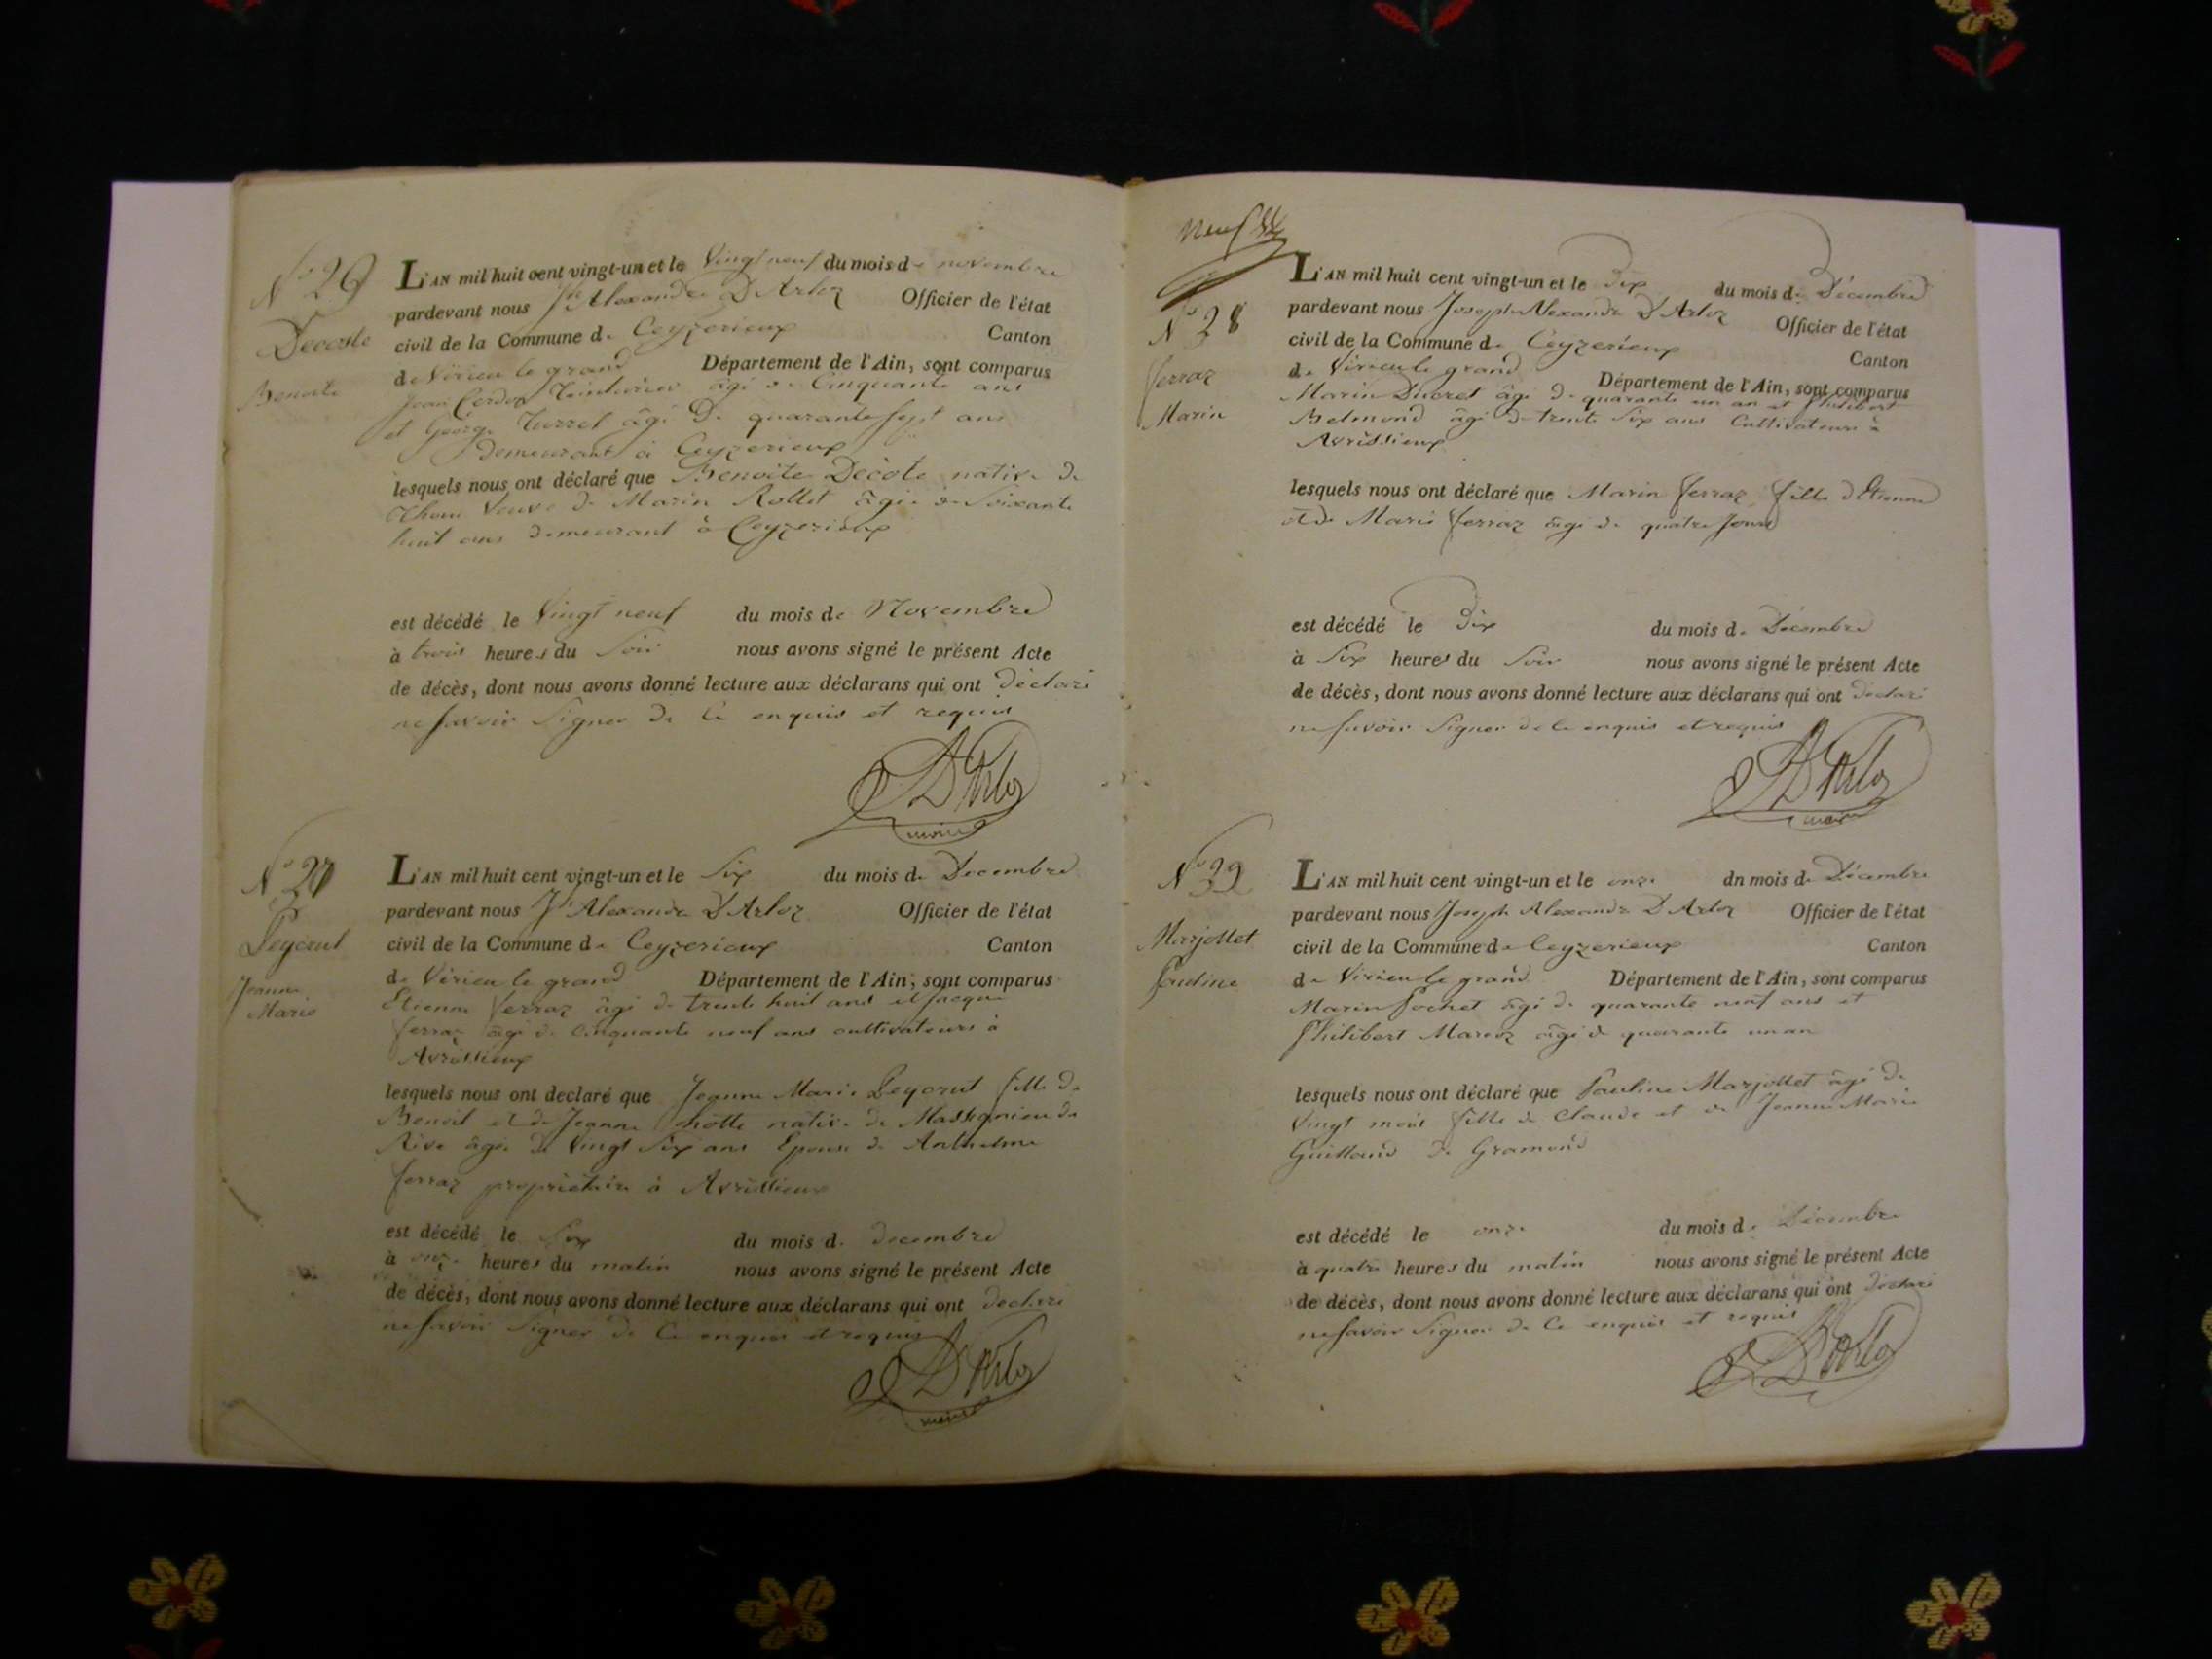 N° 26
Decoste
Benoite
L'AN mil huit cent vingt-un et le Vingt neuf du mois de novembre
pardevant nous Jh Alexandre D'Arloz Officier de l'état
civil de la Commune de Ceyzerieux Canton
de Virieu le grand Département de l'Ain, sont comparus
Jean Cerdon Teinturier âgé de Cinquante ans
et George Turrel âgé De quarante sept ans
Demeurant à Ceyzerieux
lesquels nous ont déclaré que Benoite Decote native de
Veuve de Marin Rollet âgée de Soixante
huit ans demeurant à Ceyzerieux
est décédé le Vingt neuf du mois de Novembre
à trois heures du Soir nous avons signé le présent Acte
de décès, dont nous avons donné lecture aux déclarans qui ont déclaré
ne savoir Signer de Ce enquis et requis
D'Arloz
maire
N° 27
Peycrut
Jeanne
Marie
L'AN mil huit cent vingt-un et le Six du mois de Decembre
pardevant nous Jh Alexandre D'Arloz Officier de l'état
civil de la Commune de Ceyzerieux Canton
de Virieu le grand Département de l'Ain, sont comparus
Etienne ferraz âgé de trente huit ans et Jacque
ferraz âgé de Cinquante neuf ans cultivateurs à
Avrissieux
lesquels nous ont declaré que Jeanne Marie Peycrut fille de
Benoit et de Jeanne native de Massignieu de
Rive âgée de Vingt Six ans Epouse de Anthelme
ferraz propriétaire à Avrissieux
est décédé le Six du mois de decembre
à onze heures du matin nous avons signé le présent Acte
de décès, dont nous avons donné lecture aux déclarans qui ont declaré
ne savoir Signer de Ce enquis et requis
D'Arloz
maire
neuf
N° 28
ferraz
Marin
L'AN mil huit cent vingt-un et le Dix du mois de Décembre
pardevant nous Joseph Alexandre D'Arloz Officier de l'état
civil de la Commune de Ceyzerieux Canton
de Virieu le grand Département de l'Ain, sont comparus
Marin Ducret âgé de quarante un an et Philibert
Belmond âgé de trente Six ans Cultivateurs à
Avrissieux
lesquels nous ont déclaré que Marin ferraz fille d'Etienne
et de Marie ferraz âgé de quatre Jours
est décédé le Dix du mois de Décembre
à Six heures du Soir nous avons signé le présent Acte
de décès, dont nous avons donné lecture aux déclarans qui ont declaré
ne savoir Signer de Ce enquis et requis
D'Arloz
maire
N° 29
Marjollet
Pauline
L'AN mil huit cent vingt-un et le onze dn mois de Décembre
pardevant nous Joseph Alexandre D'Arloz Officier de l'état
civil de la Commune de Ceyzerieux Canton
de Virieu le grand Département de l'Ain, sont comparus
Marin Pochet âgé de quarante neuf ans et
Philibert Marcoz âgé de quarante un an
lesquels nous ont déclaré que Pauline Marjollet âgé de
Vingt mois fille de Claude et de Jeanne Marie
Guilland De Gramond
est décédé le onze du mois de Décembre
à quatre heures du matin nous avons signé le présent Acte
de décès, dont nous avons donné lecture aux déclarans qui ont declaré
ne savoir Signer de Ce enquis et requis
D'Arloz